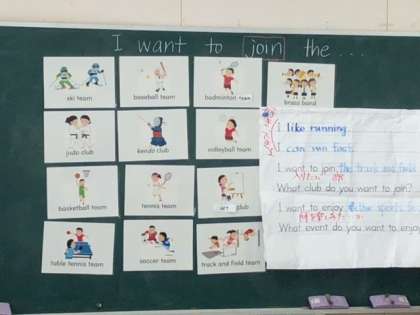 I want to join the ...
ski team
baseball team
badminton team
brass band
judo club
kendo club
volleyball team
basketball team
tennis team
art club
table tennis team
soccer team
track and field team
I like running.
I can run fast.
I want to join the track and field
入りたい
What club do you want to join?
I want to enjoy the sports
What event do you want to enjoy